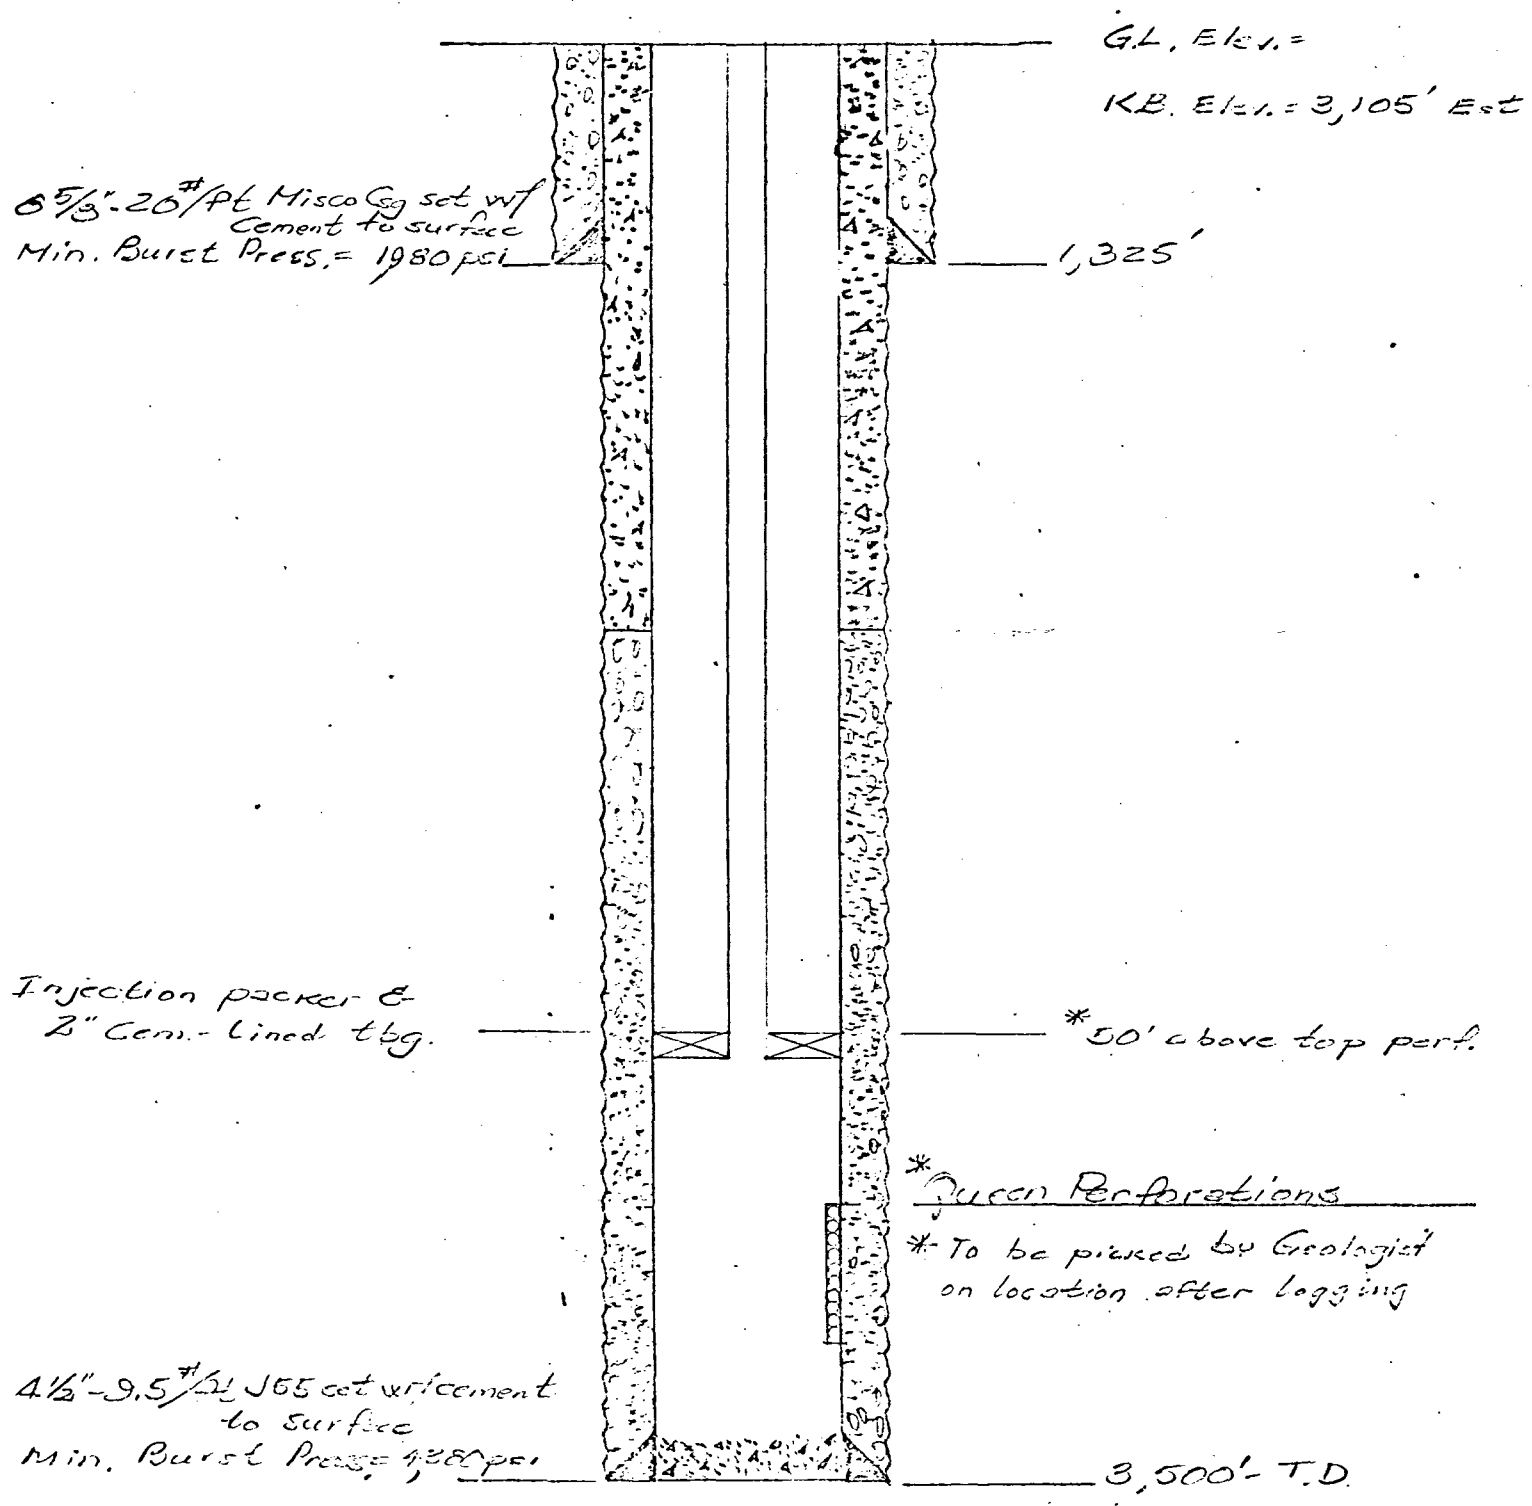 G.L. Elev. =
K.B. Elev. = 3,105' Est
8 5/8" - 20#/ft Misco Csg set w/
Cement to surface
Min. Burst Press. = 1,980 psi
1,325'
Injection packer &
2" Cem.-Lined tbg.
*50' above top perf.
*Queen Perforations
* To be picked by Geologist
on location after logging
4 1/2" - 9.5#/ft J55 set w/cement
to surface
Min. Burst Press. = 4,380 psi
3,500' - T.D.